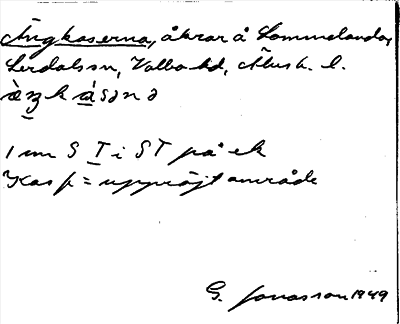 Ängkaserna, åkrar å Lommelanda,
Lerdals sn, Valbo hd, Älvsb. l.
1 km S T i ST på ek
Kas f = uppröjt område
G. Jonasson 1949